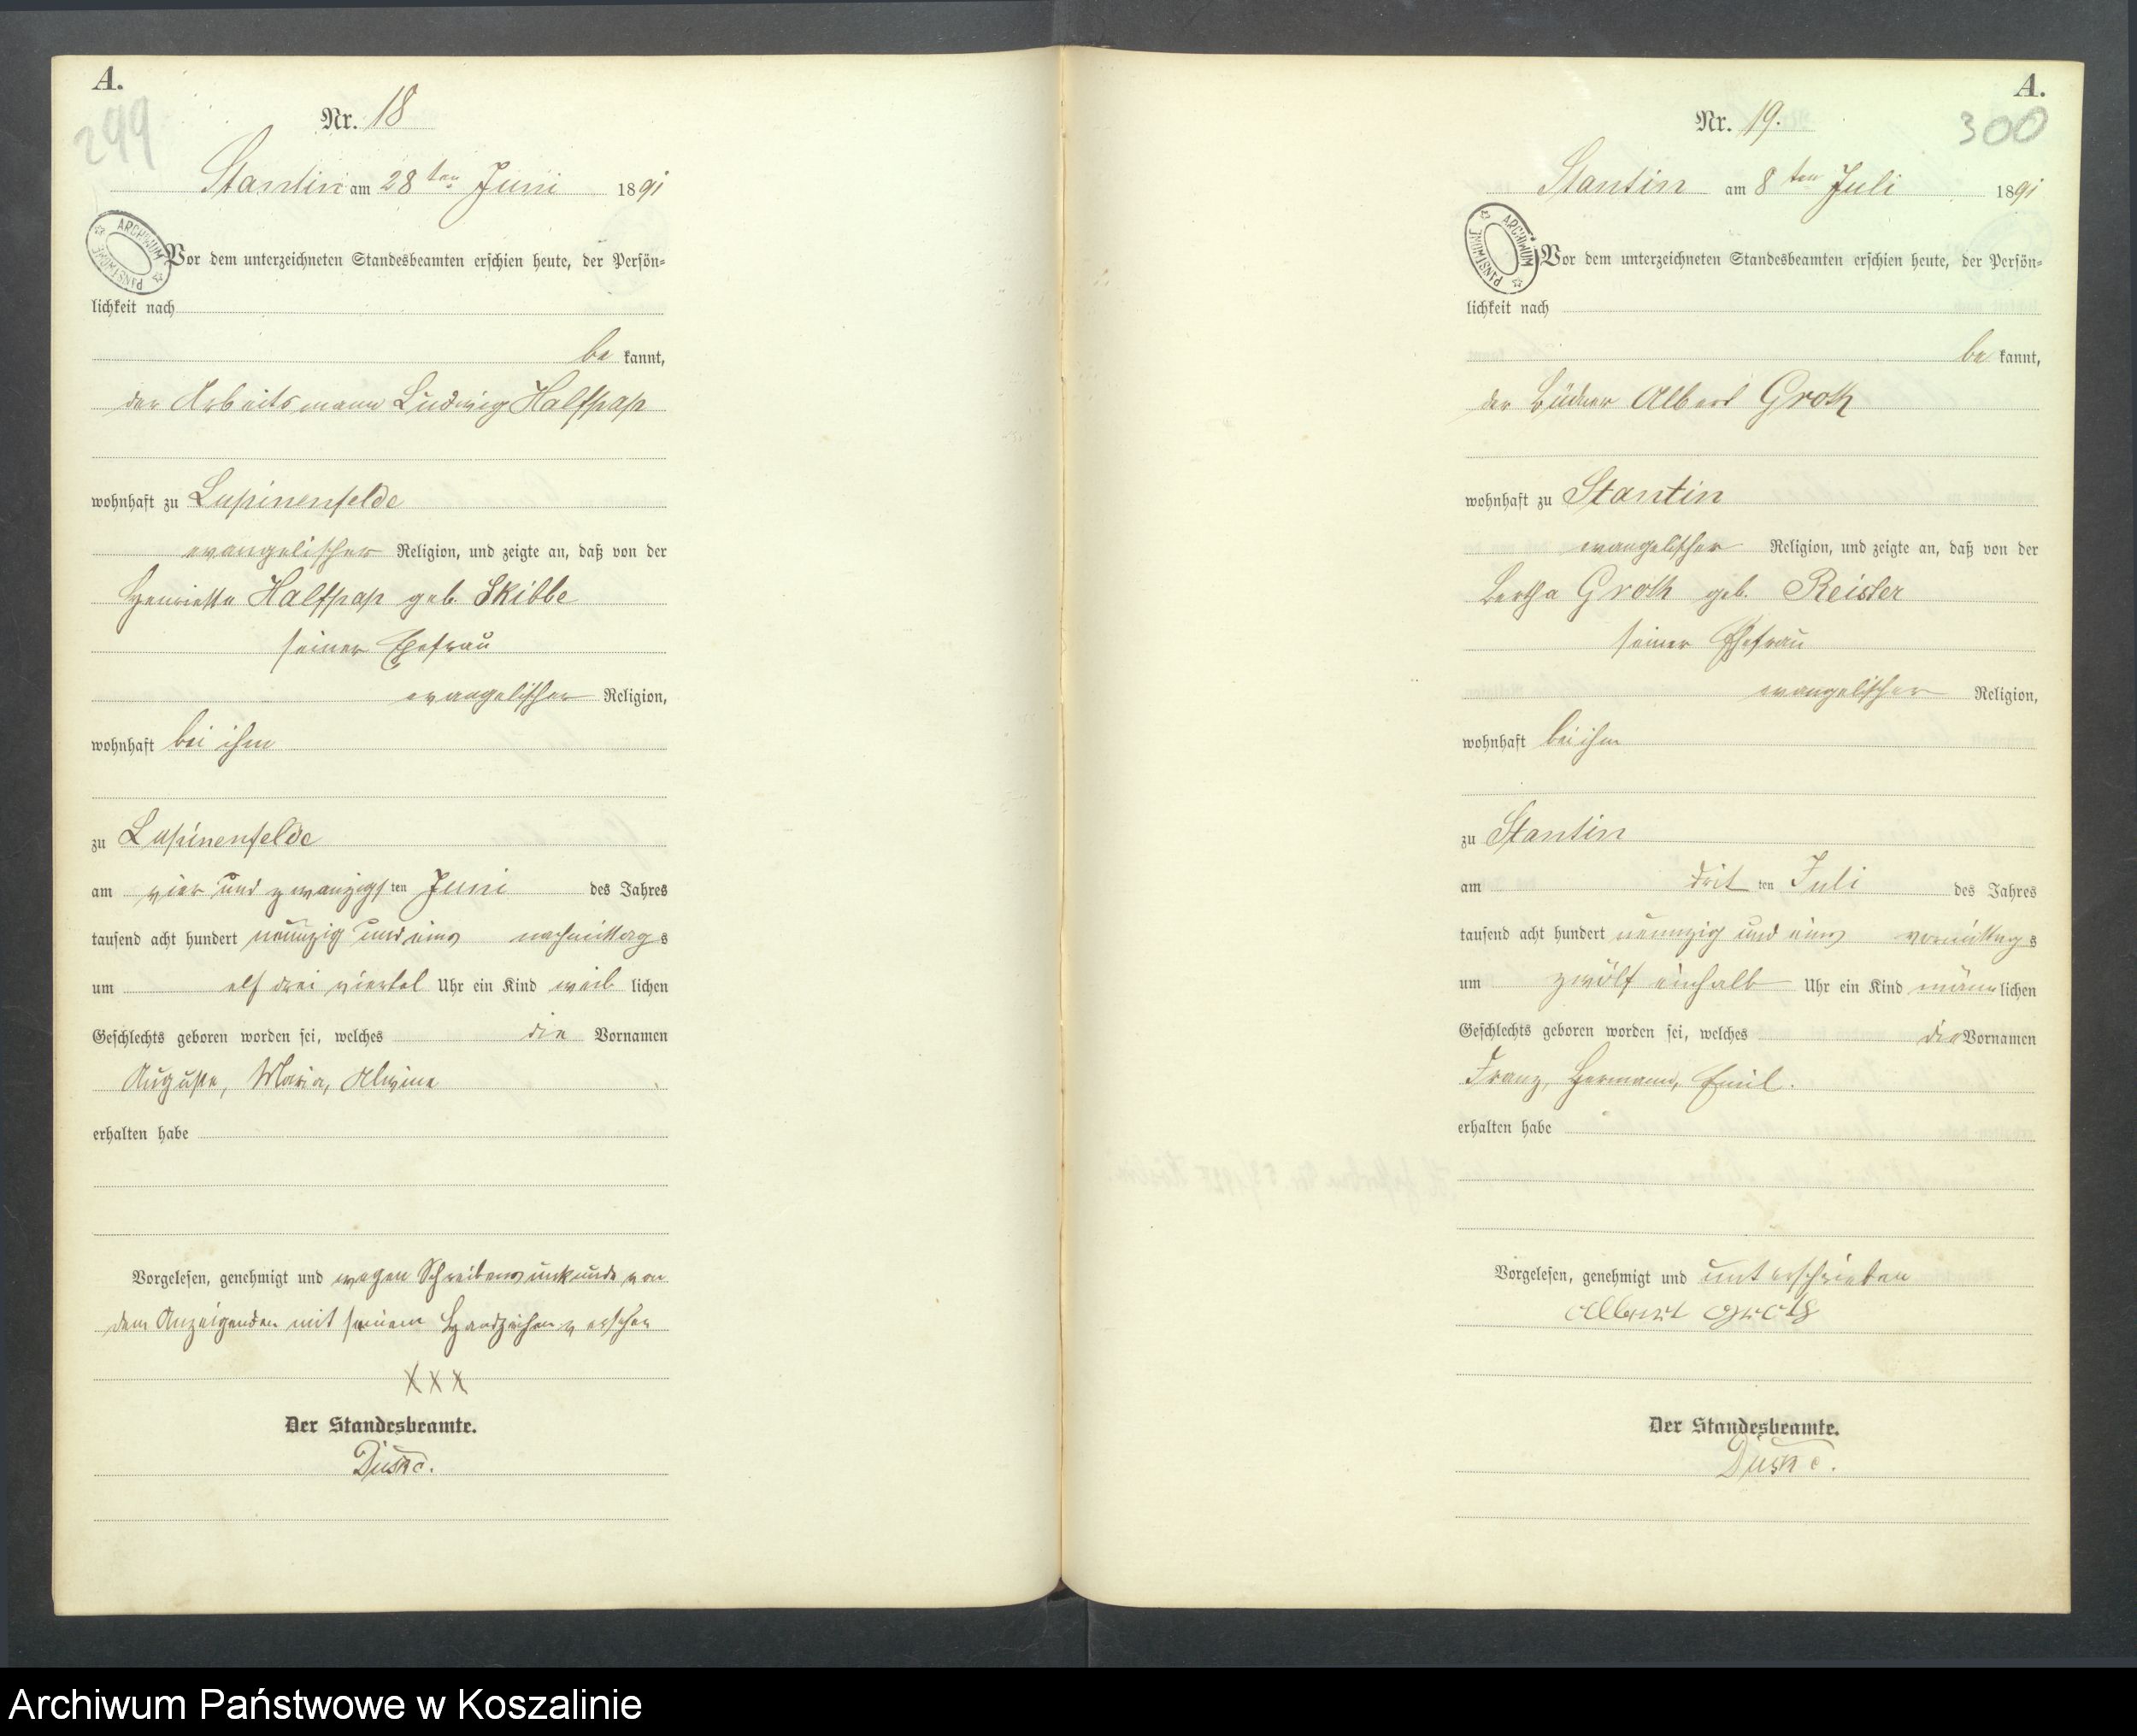 A.
299
Nr. 18
Stantin am 28 ten Juni 1891
ARCHIWUM PAŃSTWOWE
Vor dem unterzeichneten Standesbeamten erschien heute, der Persön-
lichkeit nach
be kannt,
der Arbeitsmann Ludwig Halfpap
wohnhaft zu Lupinenfelde
evangelischer Religion, und zeigte an, daß von der
Henriette Halfpap geb. Skibbe
seiner Ehefrau
evangelischer Religion,
wohnhaft bei ihm
zu Lupinenfelde
am vier und zwanzigsten Juni des Jahres
tausend acht hundert neunzig und eins nachmittags
um elf drei viertel Uhr ein Kind weib lichen
Geschlechts geboren worden sei, welches die Vornamen
Auguste, Maria, Alwine
erhalten habe
Vorgelesen, genehmigt und wegen Schreibensunkunde von
dem Anzeigenden mit seinem Handzeichen versehen
XXX
Der Standesbeamte.
A.
300
Nr. 19.
Stantin am 8 ten Juli 1891
ARCHIWUM PAŃSTWOWE
Vor dem unterzeichneten Standesbeamten erschien heute, der Persön-
lichkeit nach
be kannt,
der Büdner Albert Groth
wohnhaft zu Stantin
evangelischer Religion, und zeigte an, daß von der
Bertha Groth geb. Reister
seiner Ehefrau
evangelischer Religion,
wohnhaft bei ihm
zu Stantin
am drit ten Juli des Jahres
tausend acht hundert neunzig und eins vormittags
um zwölf einhalb Uhr ein Kind männlichen
Geschlechts geboren worden sei, welches die Vornamen
Franz, Hermann, Emil.
erhalten habe
Vorgelesen, genehmigt und unterschrieben
Albert Groth
Der Standesbeamte.
Archiwum Państwowe w Koszalinie